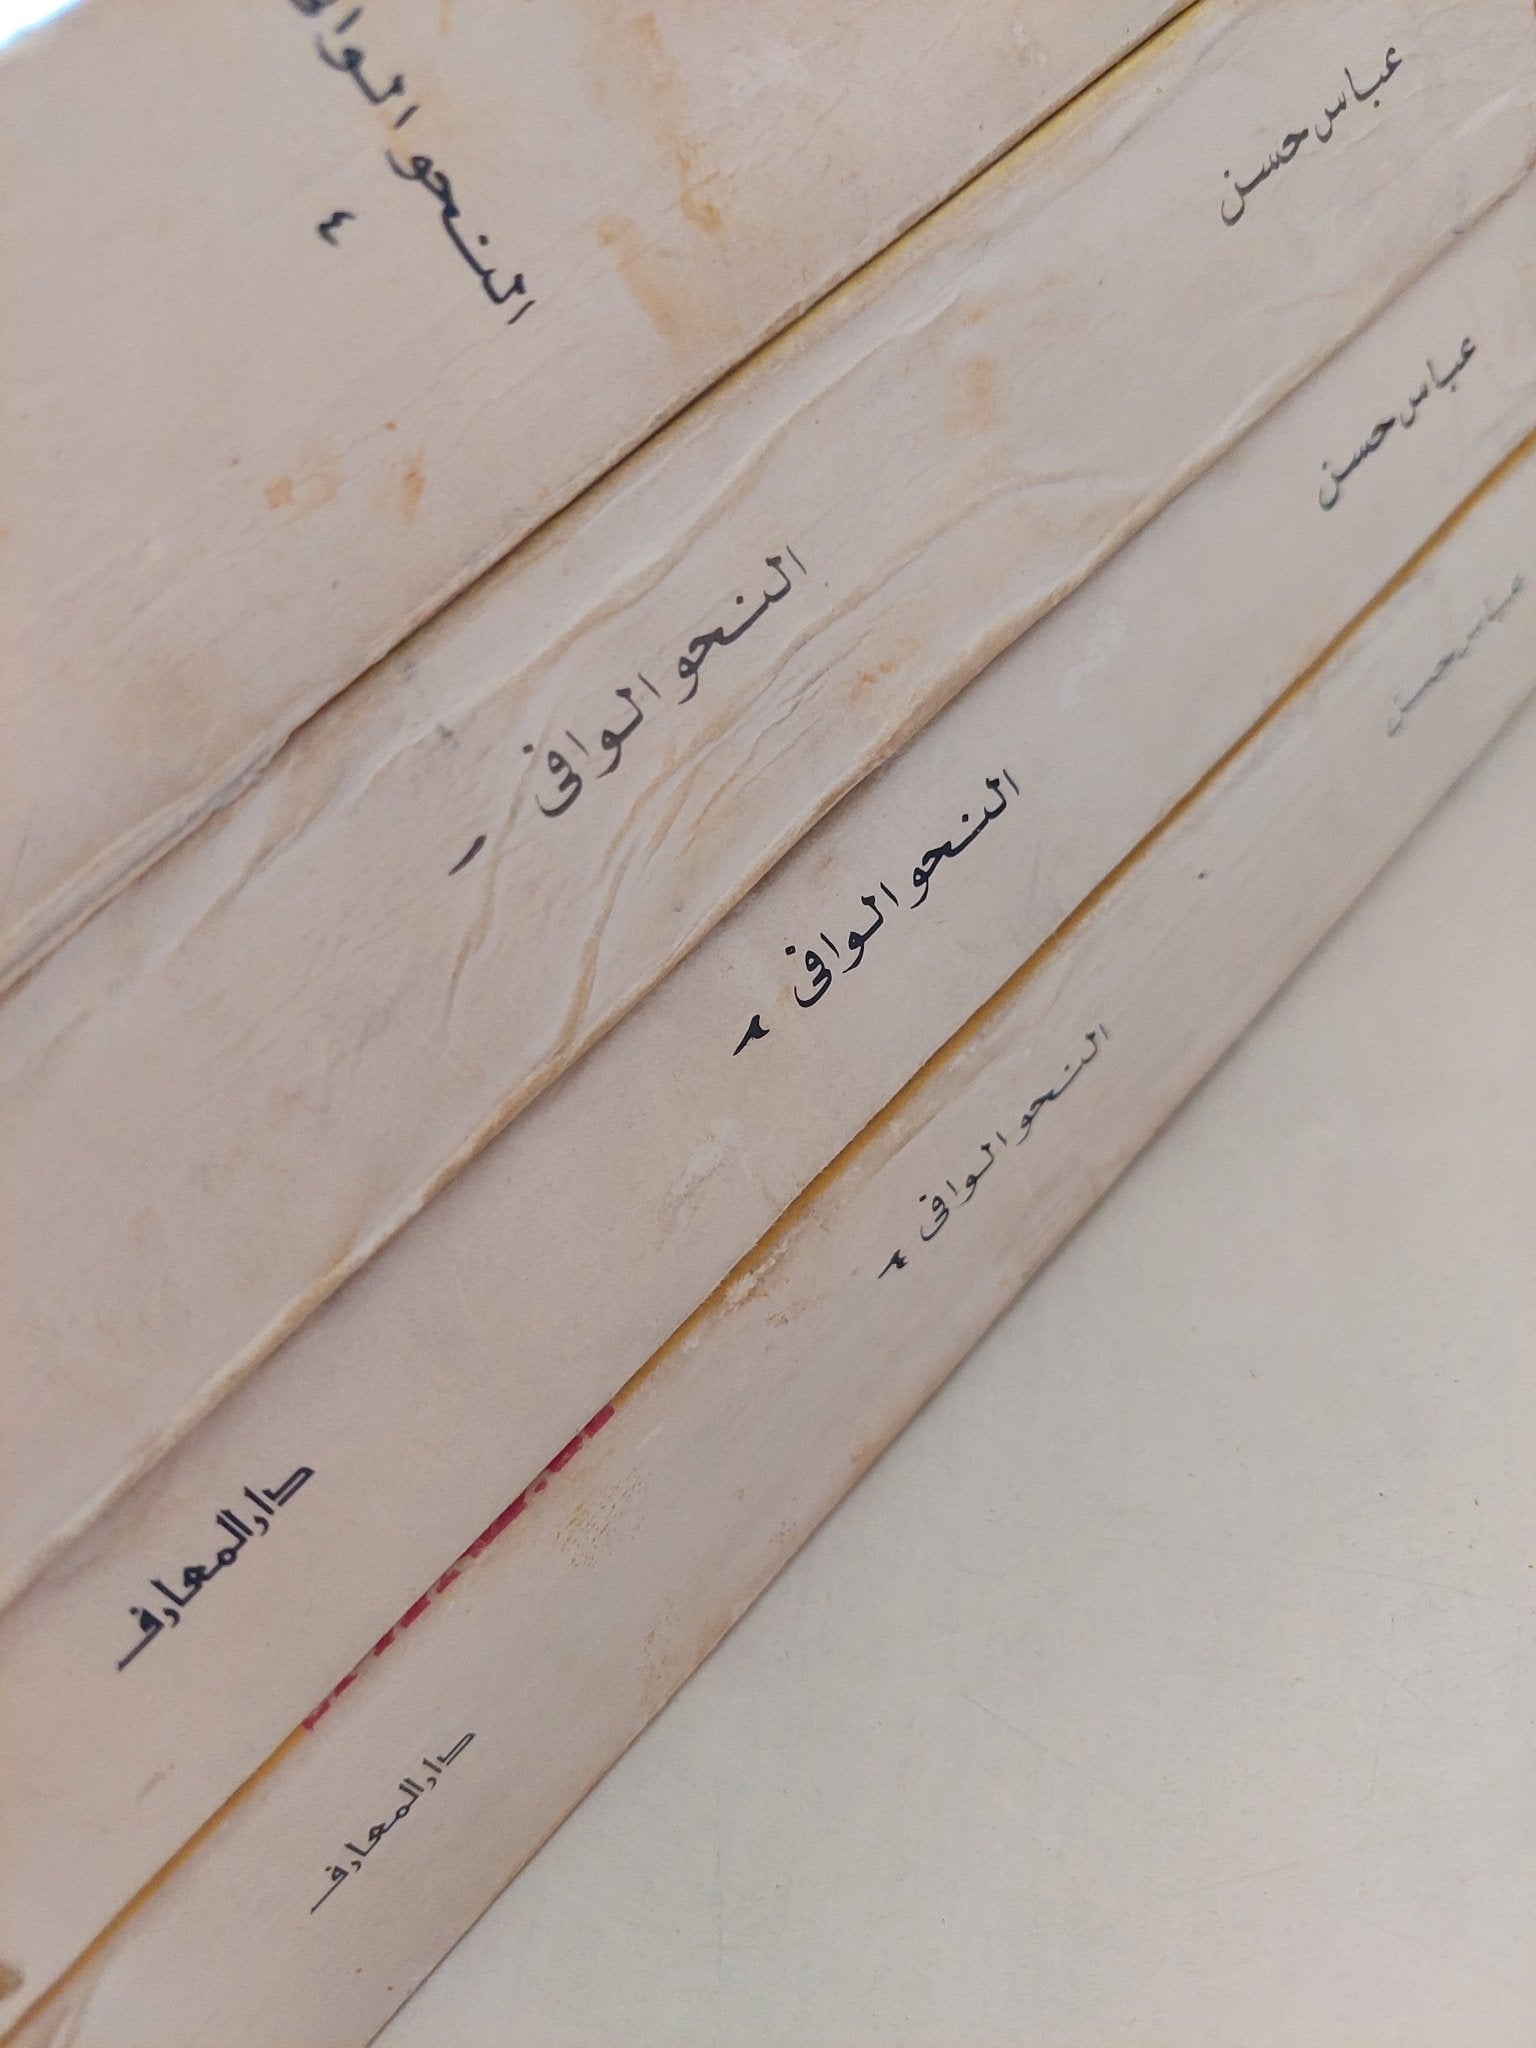 النحو الوا
٤
عباس حسن
النحو الوافى
١
عباس حسن
النحو الوافى
٢
دار المعارف
عباس حسن
النحو الوافى
٣
دار المعارف